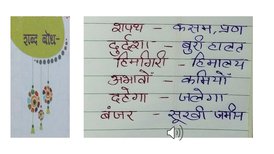 शब्द बोध-
शपथ - कसम, प्रण
दुर्दशा - बुरी हालत
हिमगिरी - हिमालय
अभावों - कमियों
दहेगा - जलेगा
बंजर - सूखी जमीन